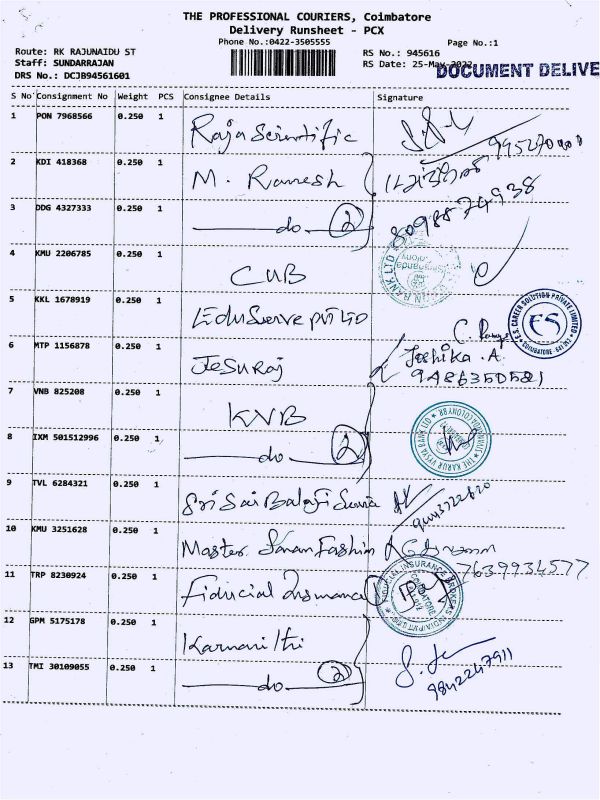 THE PROFESSIONAL COURIERS, Coimbatore
Delivery Runsheet - PCX
Phone No.:0422-3505555
Page No.:1
Route: RK RAJUNAIDU ST
RS No.: 945616
Staff: SUNDARRAJAN
RS Date: 25-May-2022
DOCUMENT DELIVE
DRS No.: DCJB94561601
S No Consignment No Weight PCS Consignee Details Signature
1 PON 7968566 0.250 1 Raja Scientific
2 KDI 418368 0.250 1 M. Ramesh
3 DDG 4327333 0.250 1 do (2) 8098874938
4 KMU 2206785 0.250 1 CUB
5 KKL 1678919 0.250 1 EduServe pvt LTD
6 MTP 1156878 0.250 1 Jesuraj Joshika .A
9486350581
7 VNB 825208 0.250 1 KVB
8 IXM 501512996 0.250 1 do (2)
9 TVL 6284321 0.250 1 Sri Sai Balaji
10 KMU 3251628 0.250 1 Master Fashion
7639934577
11 TRP 8230924 0.250 1 Fiducial Insurance
12 GPM 5175178 0.250 1
13 TMI 30109055 0.250 1 do (2) 9842247911
E.S. CAREER SOLUTION PRIVATE LIMITED
ES
COIMBATORE
THE KARUR VYSYA BANK LTD
FIDUCIAL INSURANCE BROKERS INDIA PVT LTD
COIMBATORE